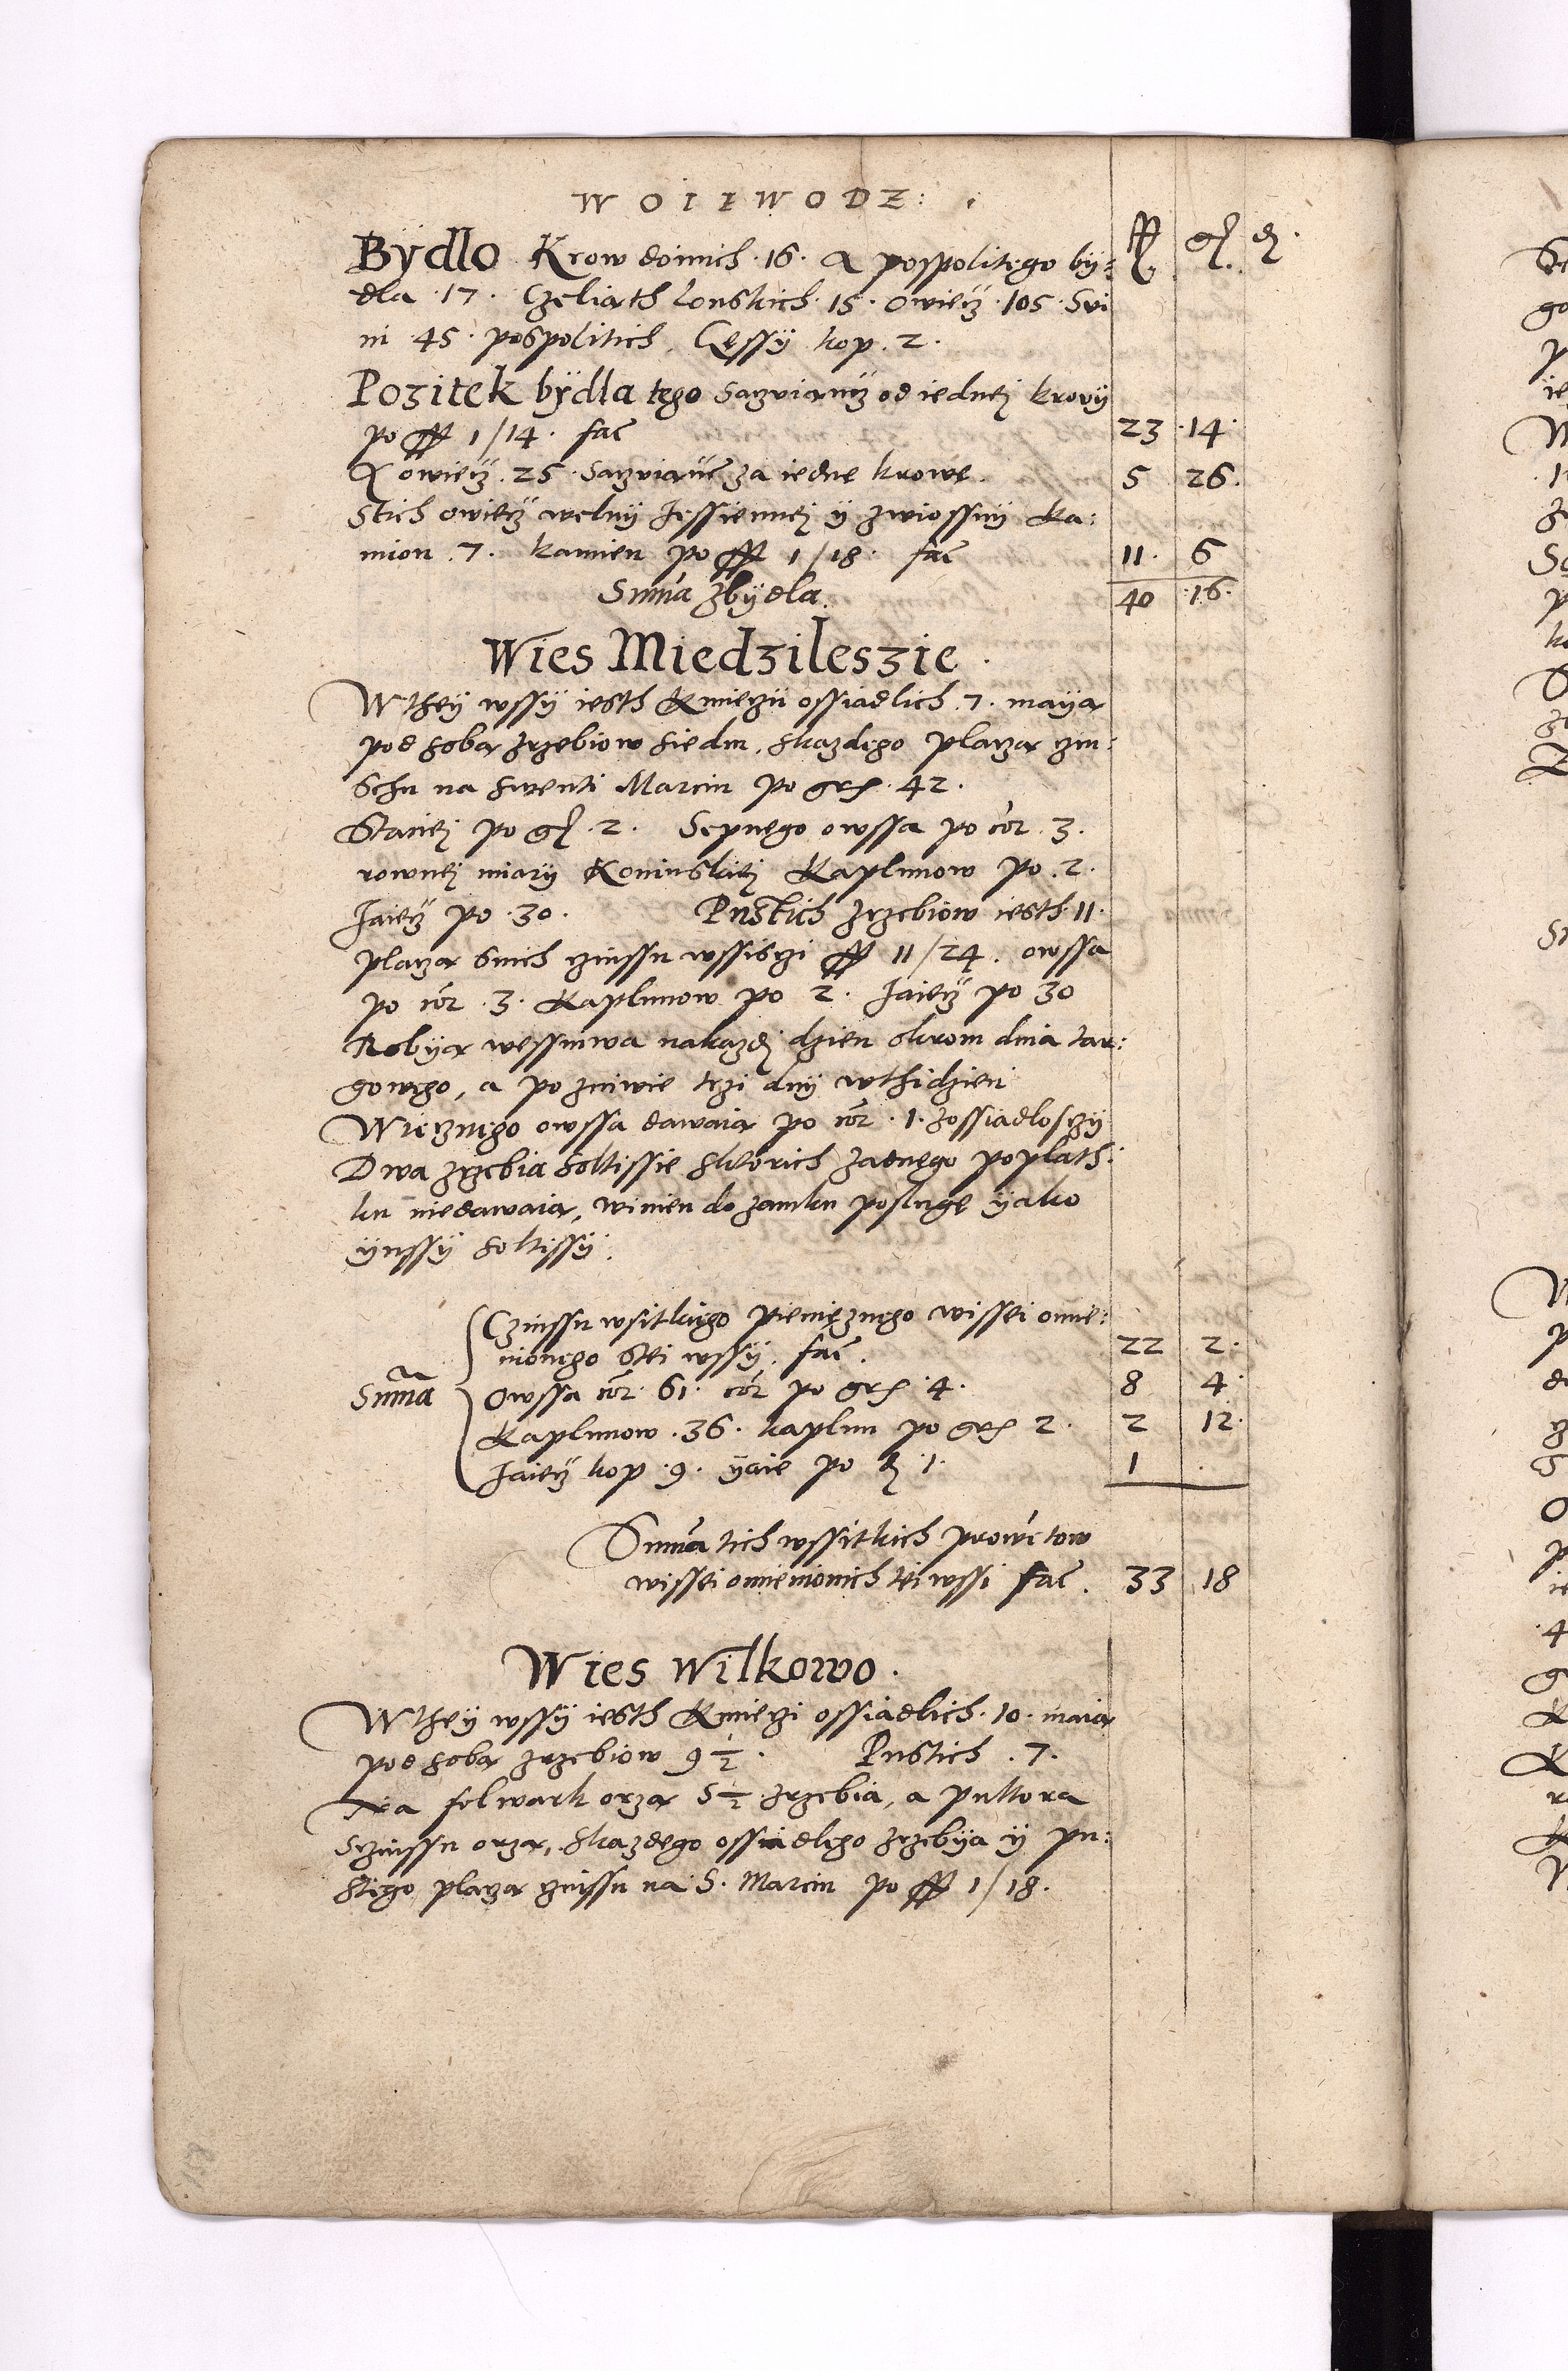 WOIEWODZ:
ff gr d.
Bÿdlo Krow doinich .16. A pospolitego bÿ:
dla .17. Czeliath lonskich .15. Owiecz .105. Svi
ni .45. pospolitich, Gęssÿ kop .2.
Pozitek bÿdla tego Sazviancz od iednej krovÿ
po ff 1/14. fac̄ 23 .14.
X owiecz .25. Sazviane za iedne krowę. 5 26.
Stich owiecz welnÿ Jessiennej ÿ zwiossnÿ Ka:
mion .7. kamien po ff 1/18. fac̄ 11. 6
Sum̄a zbÿdla. 40 .16.
Wies Miedzileszie.
Wtheÿ wssÿ iesth Kmieczii ossiadlich .7. maÿa
pod soba zrzebiow siedm, skazdego placza czin:
schu na swenti Marcin po grs. 42.
Staciej po gr .2. Sepnego owssa po cor̄ .3.
rownej miarÿ Koninskiej Kaplunow po .2.
Jaiecz po .30. Pustich zrzebiow iesth .11.
placza snich czinssu wssisczi ff 11/24. owssa
po cor̄ .3. Kaplunow po 2. Jaiecz po 30
Robÿa wessmwa nakazdj dzien okrom dnia tar:
gowego, a po zniwie trzi dnÿ wthidzien
Wiecznego owssa dawaia po cor̄ .1. zossiadlosczÿ
Dwa zrzebia soltissie sktorich zadnego poplath:
ku niedawaia, winien do zamku poslugę ÿako
ÿnssÿ soltissÿ.
Sum̄a
Czinssu wsitkiego pieniężnego wissei omie:
nionego stei wssÿ, fac̄. 22 2.
Owssa cor̄ .61. cor̄ po grs .4. 8 4.
Kaplunow .36. kaplun po grs 2. 2 12.
Jaiecz kop .9. ÿaie po d .1. 1 .
Sum̄a tich wssitkich prowētow
wissei omienionich tei wssi fac̄. 33 18
Wies Wilkowo.
Wtheÿ wssÿ iesth Kmieczi ossiadlich .10. maia
pod soba zrzebiow 9 ½. Pustich .7.
Na folwark orza 5 ½ zrzebia, a pultora
Sczinssu orza, skazdego ossiadlego zrzebÿa ÿ pu:
stego placza czinssu na S. Marcin po ff 1/18.